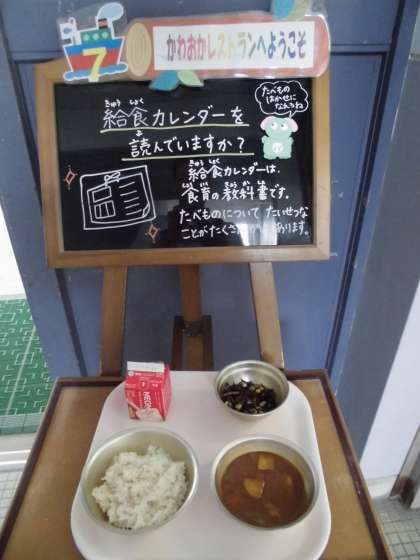 7
かわおかレストランへようこそ
たべもの
はかせに
なんちね
きゅう しょく
給食カレンダーを
よ
読んでいますか？
きゅう しょく
給食カレンダーは、
しょく いく きょう か しょ
食育の教科書です。
たべものについて たいせつな
ことがたくさん
あります。